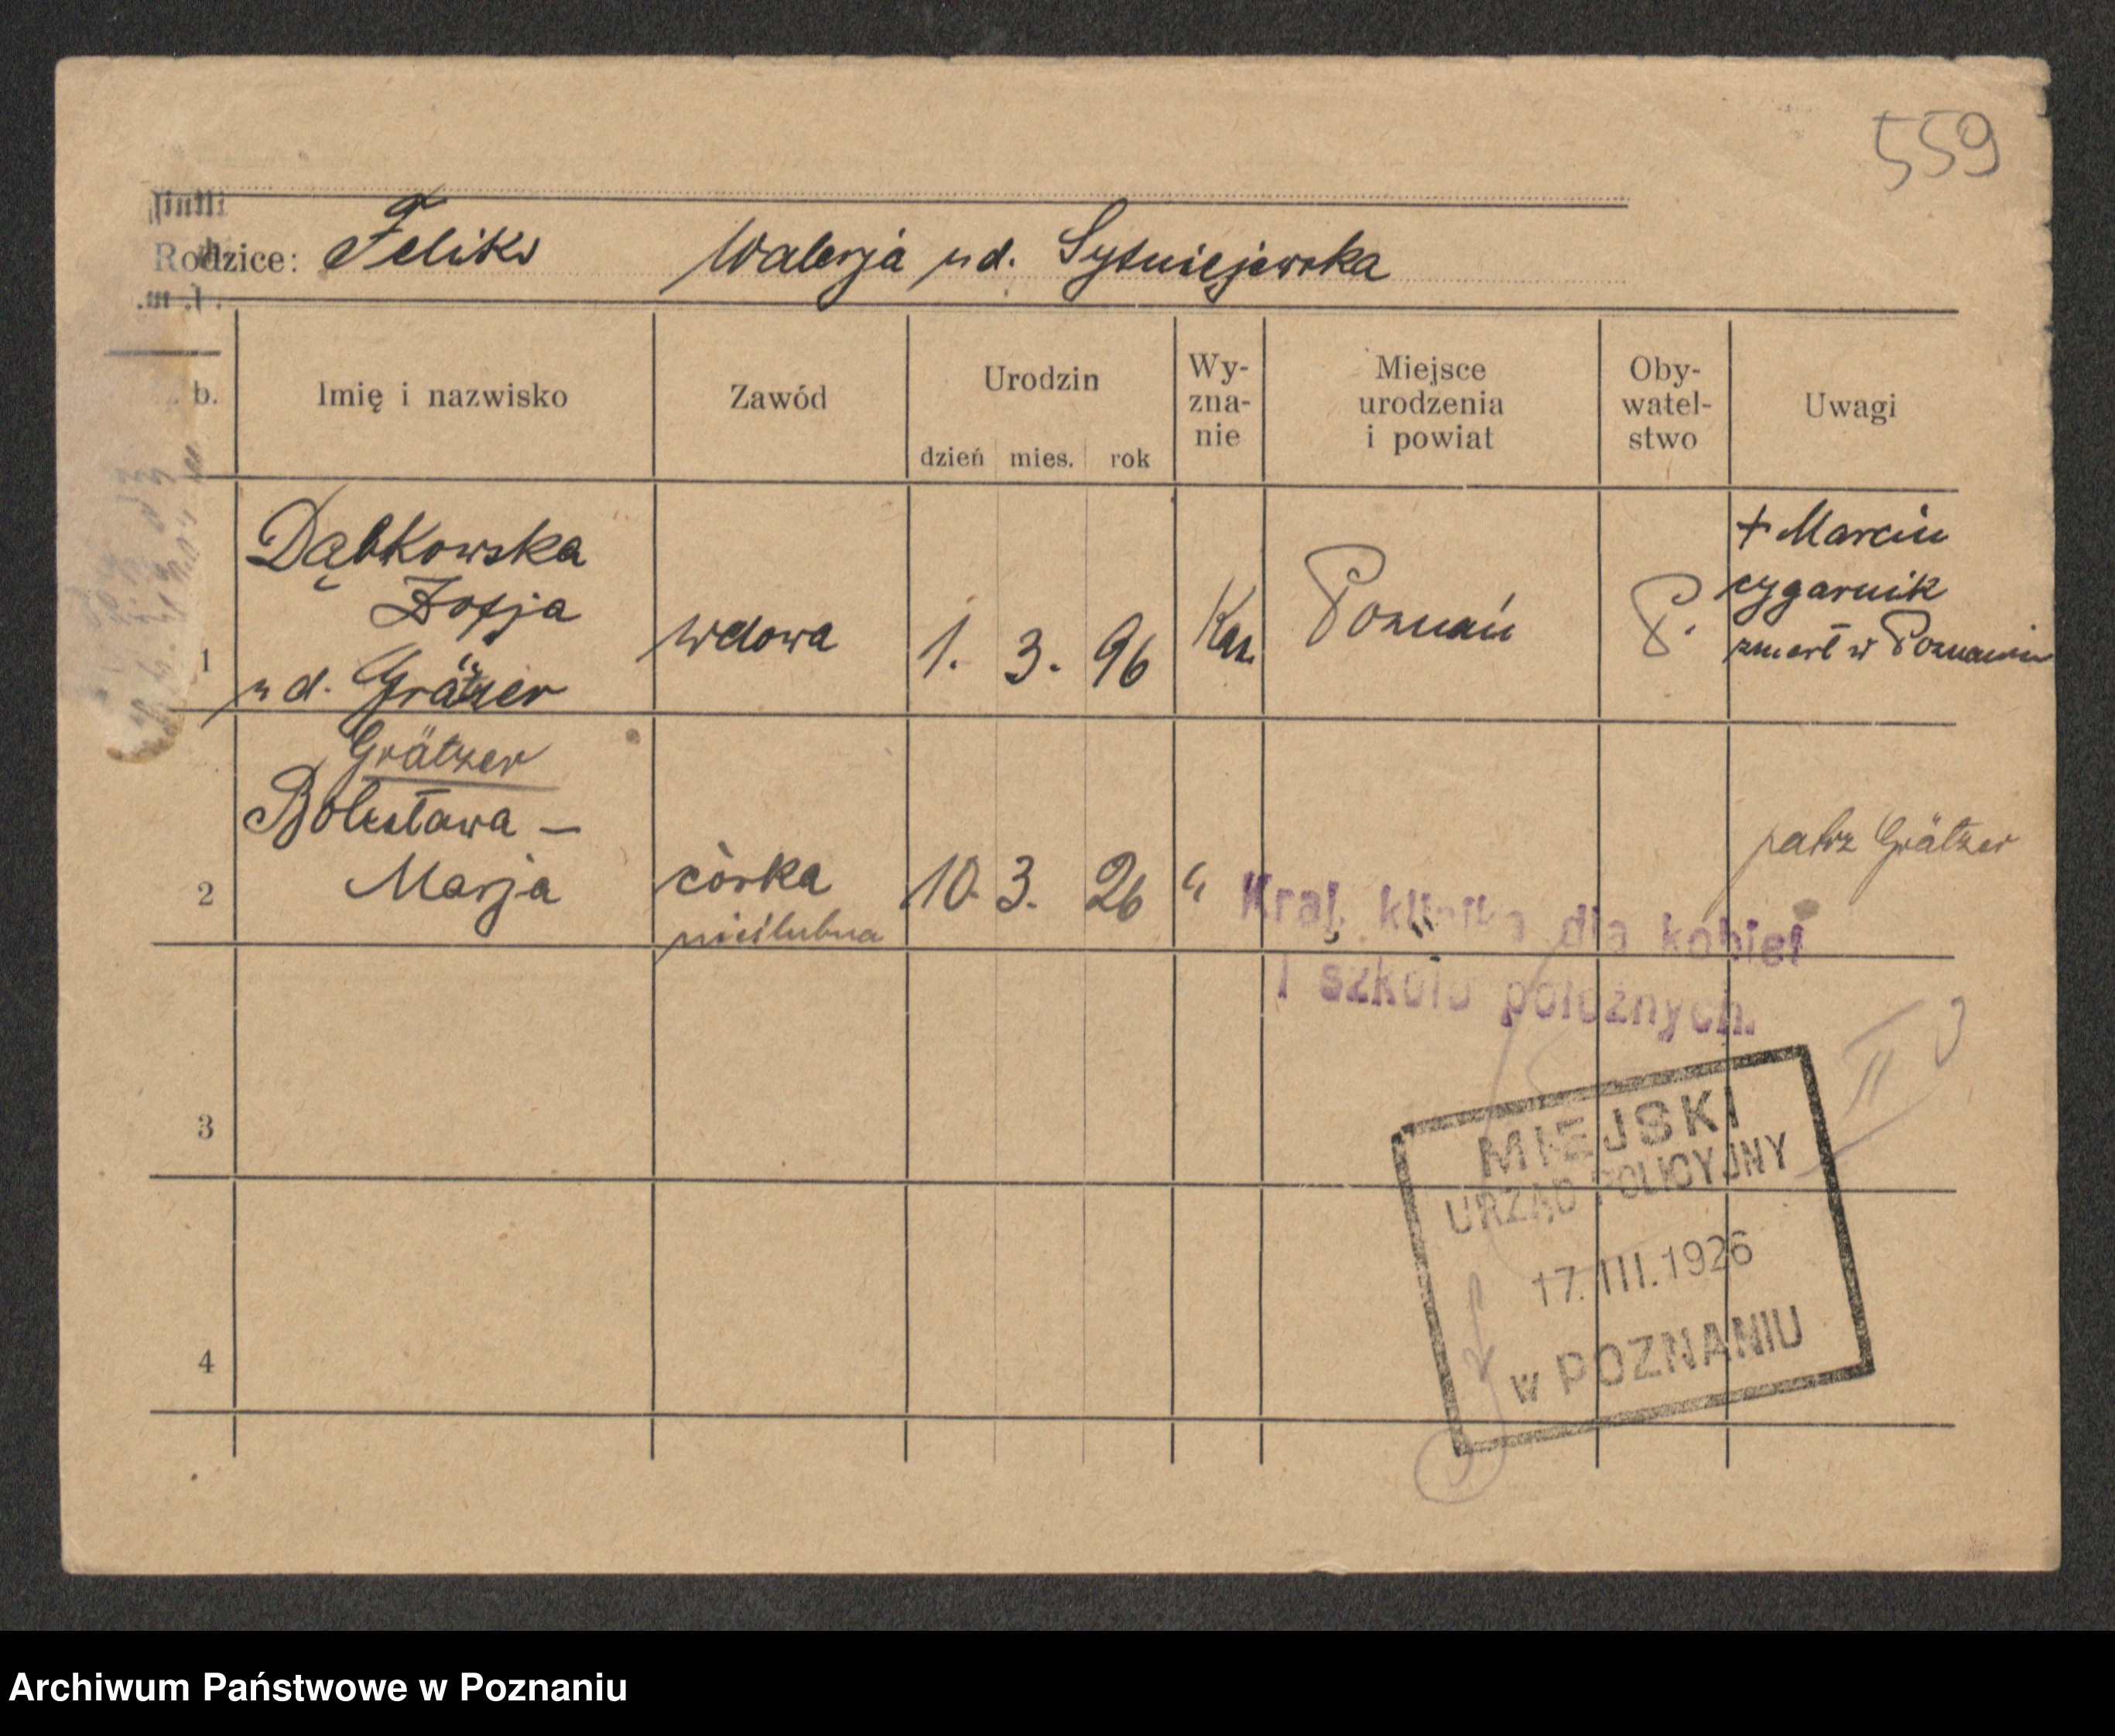 559
Rodzice: Feliks Walerja ud. Sytniejewska
b. Imię i nazwisko Zawód Urodzin Wy-
zna-
nie Miejsce
urodzenia
i powiat Oby-
watel-
stwo Uwagi
dzień mies. rok
Dąbkowska
Zofja
1 ud. Grätzer wdowa 1. 3. 96 Kat. Poznań P. + Marcin
cygarnik
zmarł w Poznaniu
Grätzer
Bolesława –
2 Marja córka
nieślubna 10. 3. 26 " patrz Grätzer
Kraj. klinika dla kobiet
i szkoła położnych.
II
3
MIEJSKI
URZĄD POLICYJNY
17. III. 1926
w POZNANIU
4
Archiwum Państwowe w Poznaniu